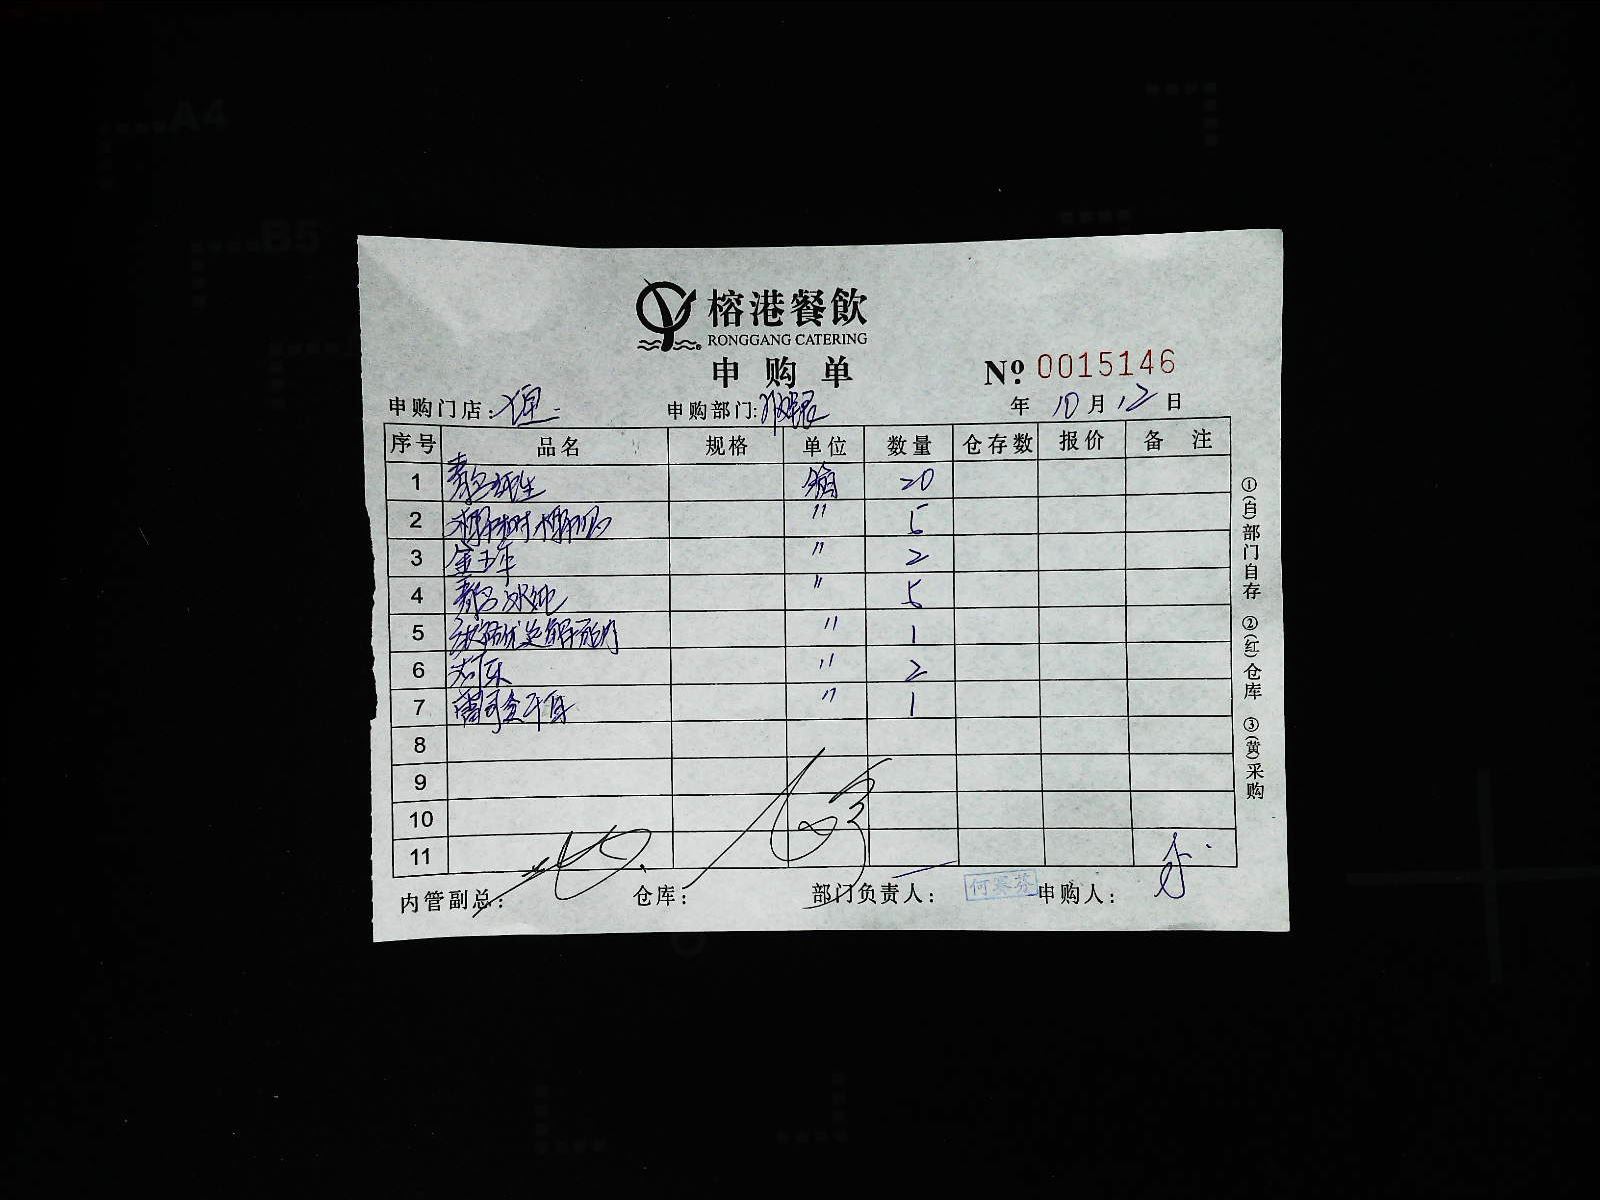 A4
B5
榕港餐飲
RONGGANG CATERING
申购单
№ 0015146
申购门店: 申购部门: 年 10 月 12 日
序号 品名 规格 单位 数量 仓存数 报价 备注
1 青岛纯生 箱 20
2 椰树椰汁 〃 5
3 金五年 〃 2
4 青岛冰纯 〃 5
5 〃 1
6 〃 2
7 〃 1
8
9
10
11
内管副总: 仓库: 部门负责人: 申购人:
①(白)部门自存 ②(红)仓库 ③(黄)采购